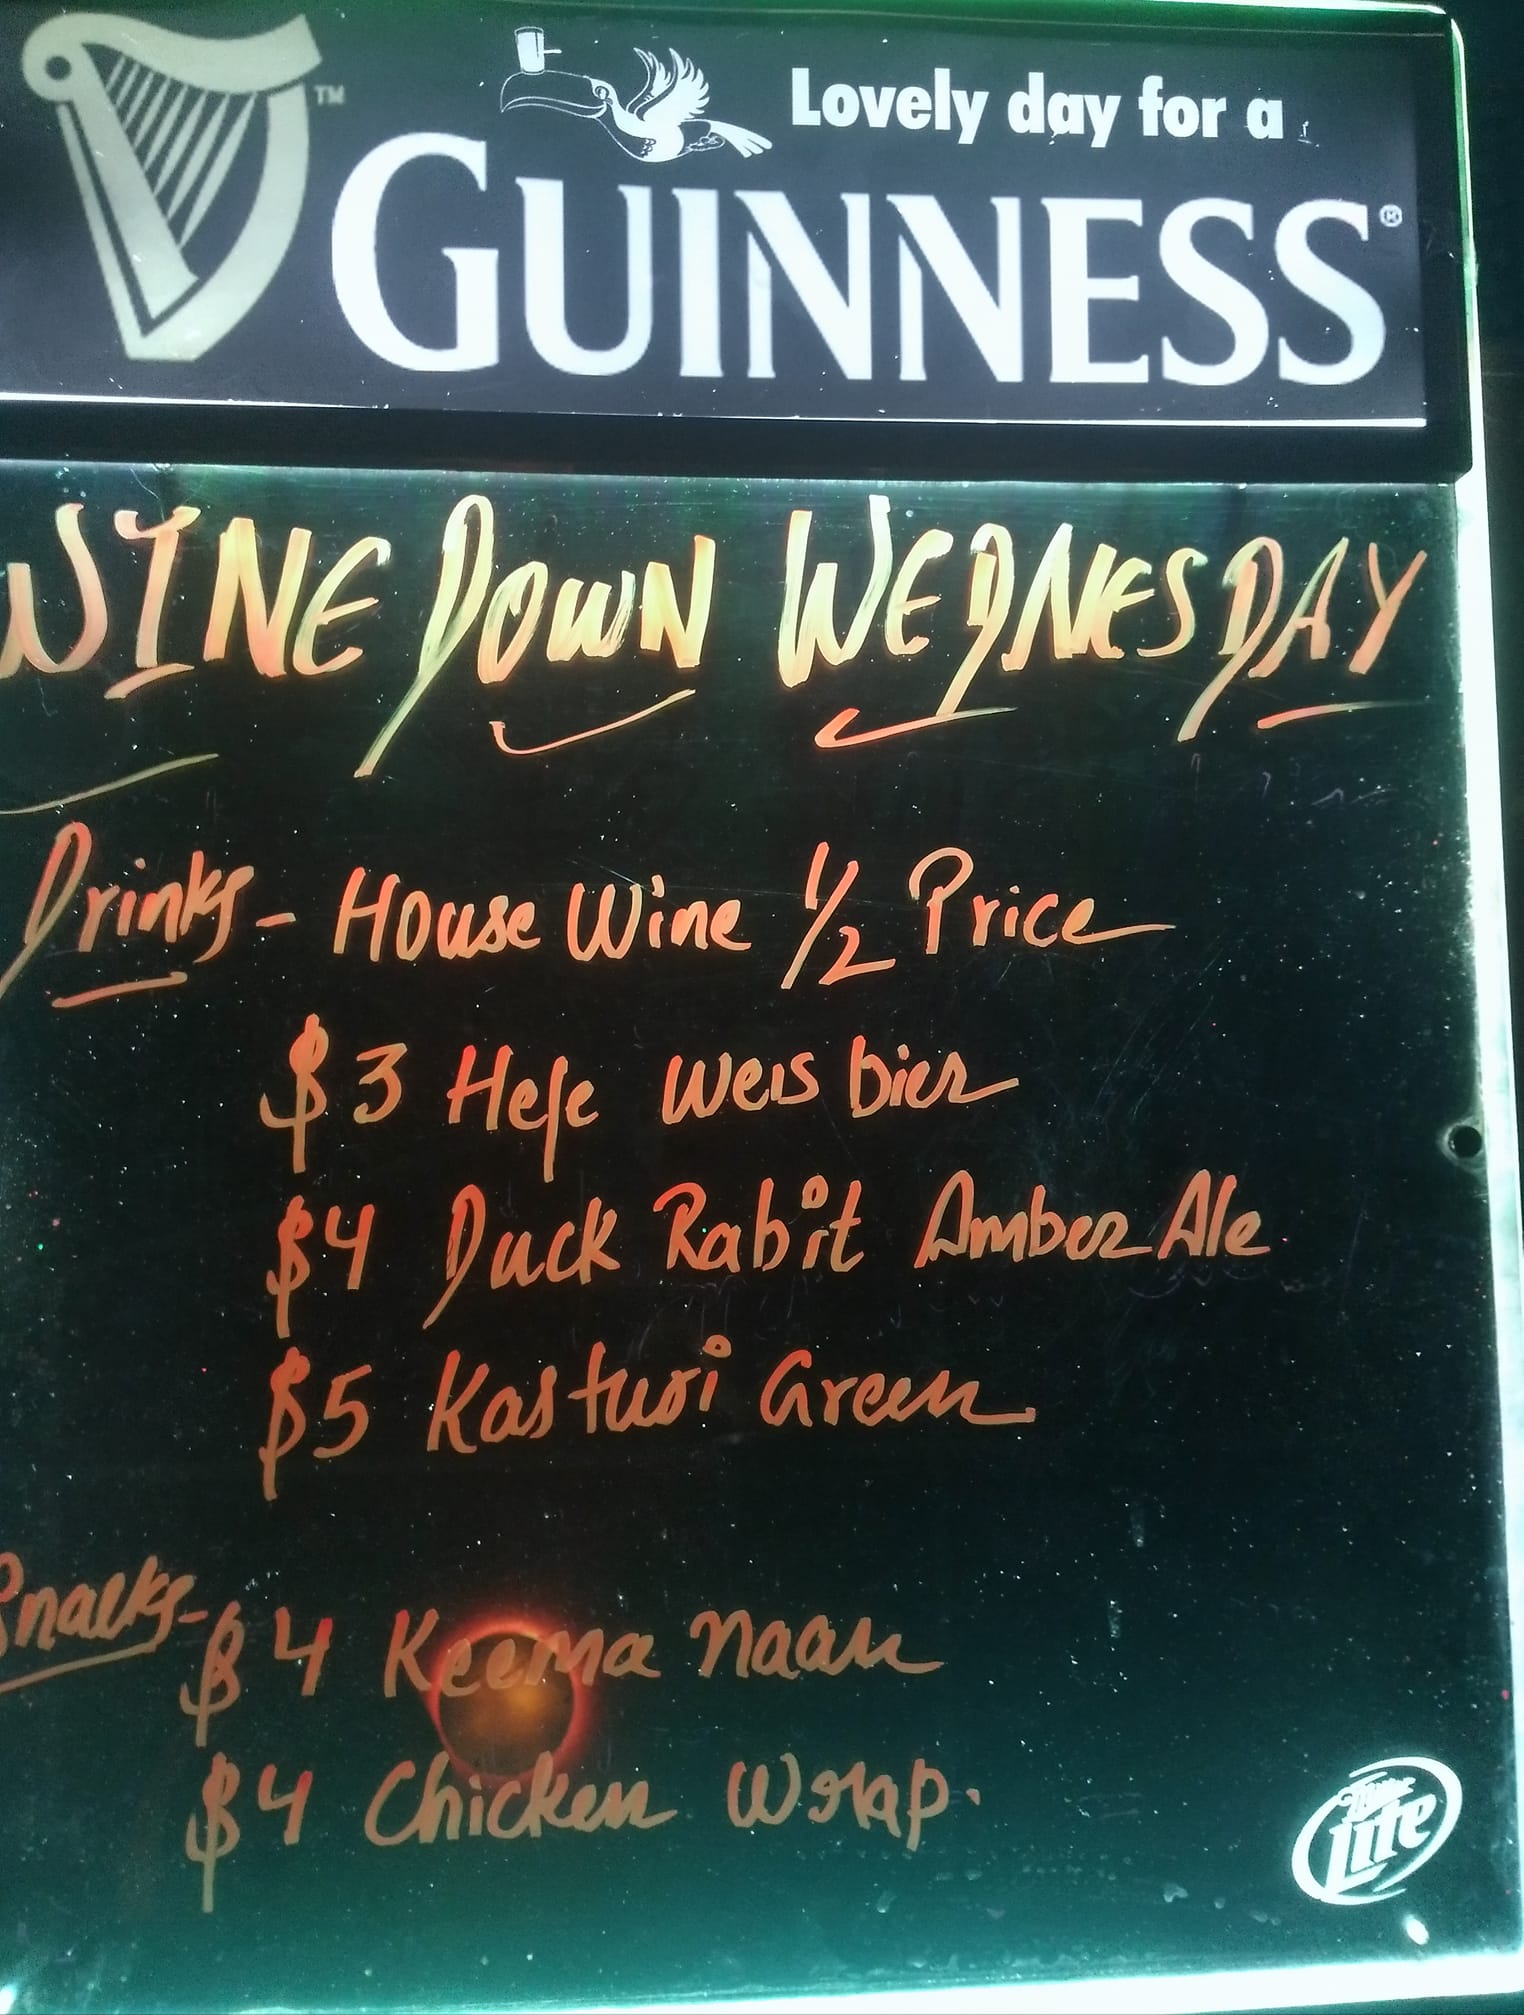 TM
Lovely day for a
GUINNESS®
WINE DOWN WEDNESDAY
Drinks - House Wine 1/2 Price
$3 Hefe weis bier
$4 Duck Rabit Amber Ale
$5 Kasturi Green
Snacks - $4 Keema naan
$4 Chicken Wrap.
Miller
Lite